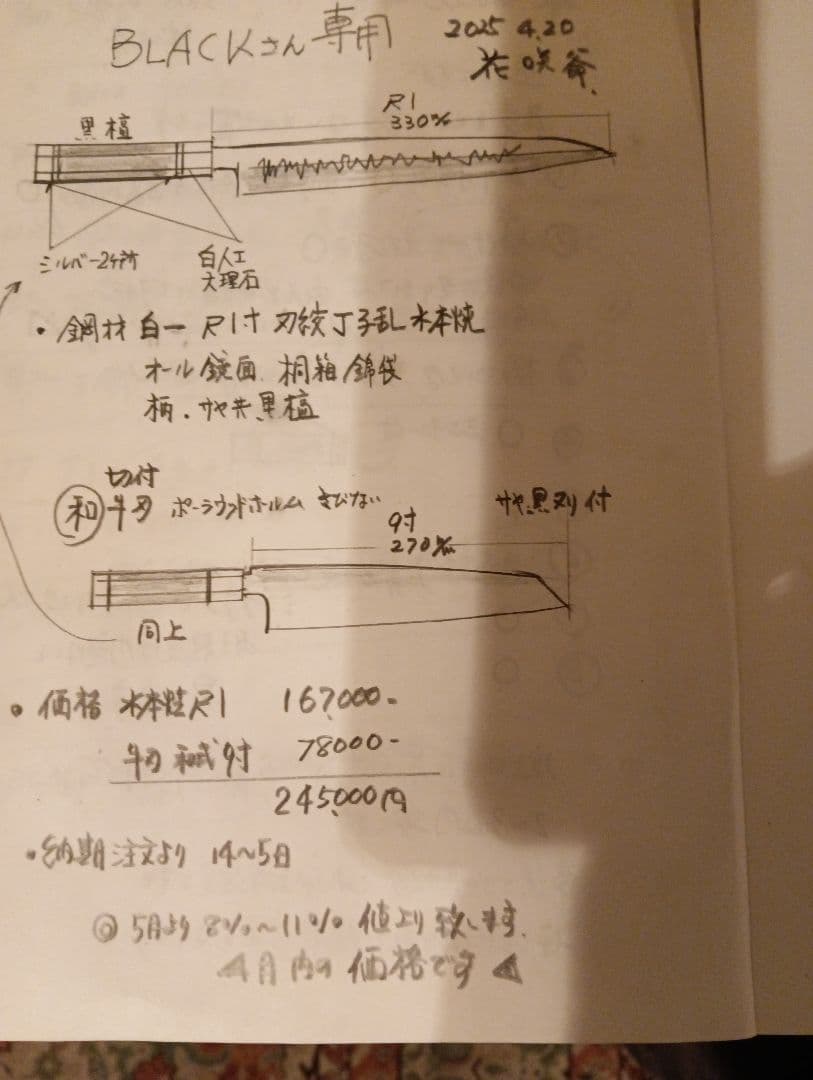 BLACKさん専用
2025 4.20
花咲爺.
R1
330㎜
黒檀
シルバー2ヶ所
白人工
大理石
・鋼材 白一 R1寸 刃紋丁子乱 水本焼
オール鏡面 桐箱/錦袋
柄.サヤ共黒檀
切付
和 牛刀 ボーラウンドホルム さびない
サヤ黒刃付
9寸
270㎜
同上
・価格 水本焼R1 167,000-
牛刀 和式9寸 78000-
245,000円
・納期注文より 14〜5日
◎5月より 8%〜11% 値上り致します.
4月内の価格です